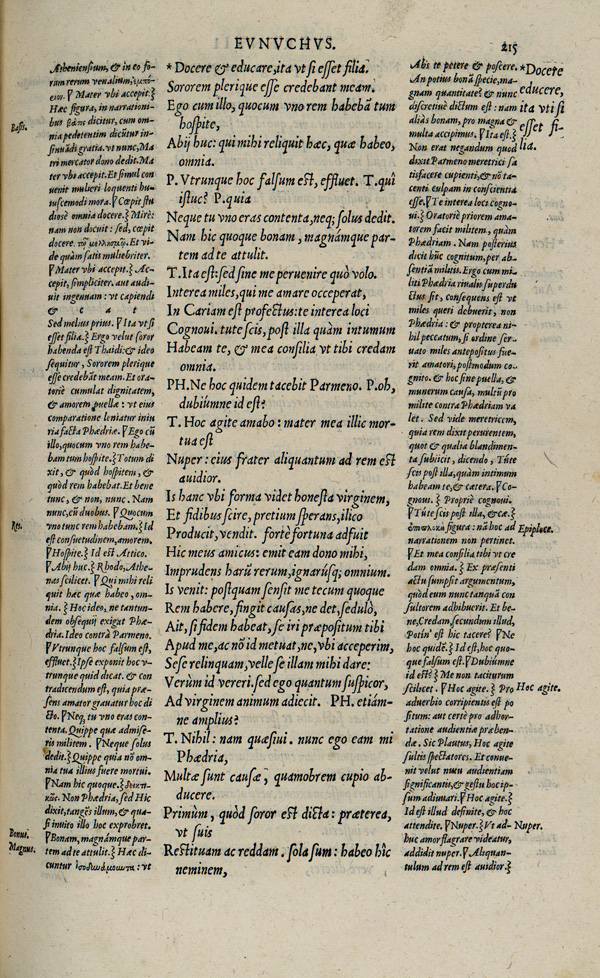 EVNVCHVS.
215
Atheniensium, & in eo fo-
rum rerum venalium,
Mater vbi accepit.
Hæc figura, in narrationi-
bus dicitur, cum om-
nia pedetentim dicūtur in-
sinuādi gratia. vt nunc, Ma
tri mercator dono dedit. Ma
ter vbi accepit. Et simul con
uenit mulieri loquenti hu-
iuscemodi mora. Cœpit stu
diosè omnia docere.} Mirè:
nam non docuit: sed, cœpit
docere. Et vi-
de quàm satis muliebriter.
Mater vbi accepit.} Ac-
cepit, simpliciter. aut audi-
uit ingenuam: vt capiendi
& c a t
Sed melius prius. Ita vt si
esset filia.} Ergo velut soror
habenda est Thaidi: & ideo
sequitur, Sororem plerique
esse credebāt meam. Et ora-
toriè cumulat dignitatem,
& amorem puellæ: vt eius
comparatione leniatur iniu
ria facta Phædriæ. Ego cū
illo, quocum vno rem habe-
bam tum hospite.} Totum di
xit, & quòd hospitem, &
quòd rem habebat. Et bene
tunc, & non, nunc. Nam
nunc, cū duobus. Quocum
vno tunc rem habebam.} Id
est consuetudinem, amorem.
Hospite.} Id est Attico.
Abij huc.} Rhodo, Athe-
nas scilicet. Qui mihi reli
quit hæc quæ habeo, om-
nia.} Hoc ideo, ne tantun-
dem obsequij exigat Phæ-
dria. Ideo contrà Parmeno.
Vtrunque hoc falsum est,
effluet.} Ipse exponit hoc v-
trunque quid dicat. & con
tradicendum est, quia præ-
sens amator grauatur hoc di
cto. Neq; tu vno eras con-
tenta. Quippe quæ admise-
ris militem. Neque solus
dedit.} Quippe quia nō om-
nia tua illius fuere mortui.
Nam hic quoque.}
Non Phædria, sed Hic
dixit, tangēs illum, & qua-
si inuito illo hoc exprobret.
Bonam, magnámque par-
tem ad te attulit.} Hæc di-
cuntur : vt
Basis.
Res.
Bonus.
Magnus.
* Docere & educare, ita vt si esset filia.
Sororem plerique esse credebant meam.
Ego cum illo, quocum vno rem habebā tum
hospite,
Abij huc: qui mihi reliquit hæc, quæ habeo,
omnia.
P. Vtrunque hoc falsum est, effluet. T. quī
istuc? P. quia
Neque tu vno eras contenta, neq; solus dedit.
Nam hic quoque bonam, magnámque par-
tem ad te attulit.
T. Ita est: sed sine me peruenire quò volo.
Interea miles, qui me amare occeperat,
In Cariam est profectus: te interea loci
Cognoui. tute scis, post illa quàm intumum
Habeam te, & mea consilia vt tibi credam
omnia.
PH. Ne hoc quidem tacebit Parmeno. P. oh,
dubiúmne id est?
T. Hoc agite amabo: mater mea illic mor-
tua est
Nuper: eius frater aliquantum ad rem est
auidior.
Is hanc vbi forma videt honesta virginem,
Et fidibus scire, pretium sperans, ilico
Producit, vendit. fortè fortuna adfuit
Hic meus amicus: emit eam dono mihi,
Imprudens harū rerum, ignarúsq; omnium.
Is venit: postquam sensit me tecum quoque
Rem habere, fingit causas, ne det, sedulò,
Ait, si fidem habeat, se iri præpositum tibi
Apud me, ac nō id metuat, ne, vbi acceperim,
Sese relinquam, velle se illam mihi dare:
Verùm id vereri. sed ego quantum suspicor,
Ad virginem animum adiecit. PH. etiám-
ne amplius?
T. Nihil: nam quæsiui. nunc ego eam mi
Phædria,
Multæ sunt causæ, quamobrem cupio ab-
ducere.
Primùm, quòd soror est dicta: præterea,
vt suis
Restituam ac reddam. sola sum: habeo hîc
neminem,
Abs te petere & poscere.
An potius bonā specie, ma-
gnam quantitate? & nunc
discretiuè dictum est: nam
aliàs bonam, pro magna &
multa accipimus. Ita est.}
Non erat negandum quod
dixit Parmeno meretrici sa
tisfacere cupienti, & nō ta-
centi culpam in conscientia
esse. Te interea loci cogno-
ui.} Oratoriè priorem ama-
torem facit militem, quàm
Phædriam. Nam posterius
dicit hūc cognitum, per ab-
sentiā militis. Ergo cum mi-
liti Phædria riualis superdu
ctus sit, consequens est vt
miles queri debuerit, non
Phædria: & propterea ni-
hil peccatum, si ordine ser-
uato miles antepositus fue-
rit amatori, postmodum co-
gnito. & hoc sine puella, &
munerum causa, multū pro
milite contra Phædriam va
let. Sed vide meretricem,
quia rem dixit peruenitem,
quot & qualia blandimen-
ta subiicit, dicendo, Túte
scis post illa, quàm intimum
habeam te, & cætera. Co-
gnoui.} Propriè cognoui.
Túte scis post illa, &cæ.}
figura: nā hoc ad
narrationem non pertinet.
Et mea consilia tibi vt cre
dam omnia.} Ex præsenti
actu sumpsit argumentum,
quòd eum nunc tanquā con
sultorem adhibuerit. Et be-
ne, Credam, secundum illud,
Potin' est hic tacere? Ne
hoc quidē.} Id est, hoc quo-
que falsum est. Dubiúmne
id est?} Me non taciturum
scilicet. Hoc agite.} Pro
aduerbio corripientis est po
situm: aut certè pro adhor-
tatione audientiæ præben-
dæ. Sic Plautus, Hoc agite
sultis spectatores. Et conue-
nit velut nunc audientiam
significantis, & gestu hoc ip-
sum adiuuari. Hoc agite.}
Id est illud desinite, & hoc
attendite. Nuper.} Vt ad-
huc amor flagrare videatur,
addidit nuper. Aliquan-
tulum ad rem est auidior.}
*Docere
educare,
ita vti si
esset fi-
lia.
Epiploce.
Hoc agite.
Nuper.